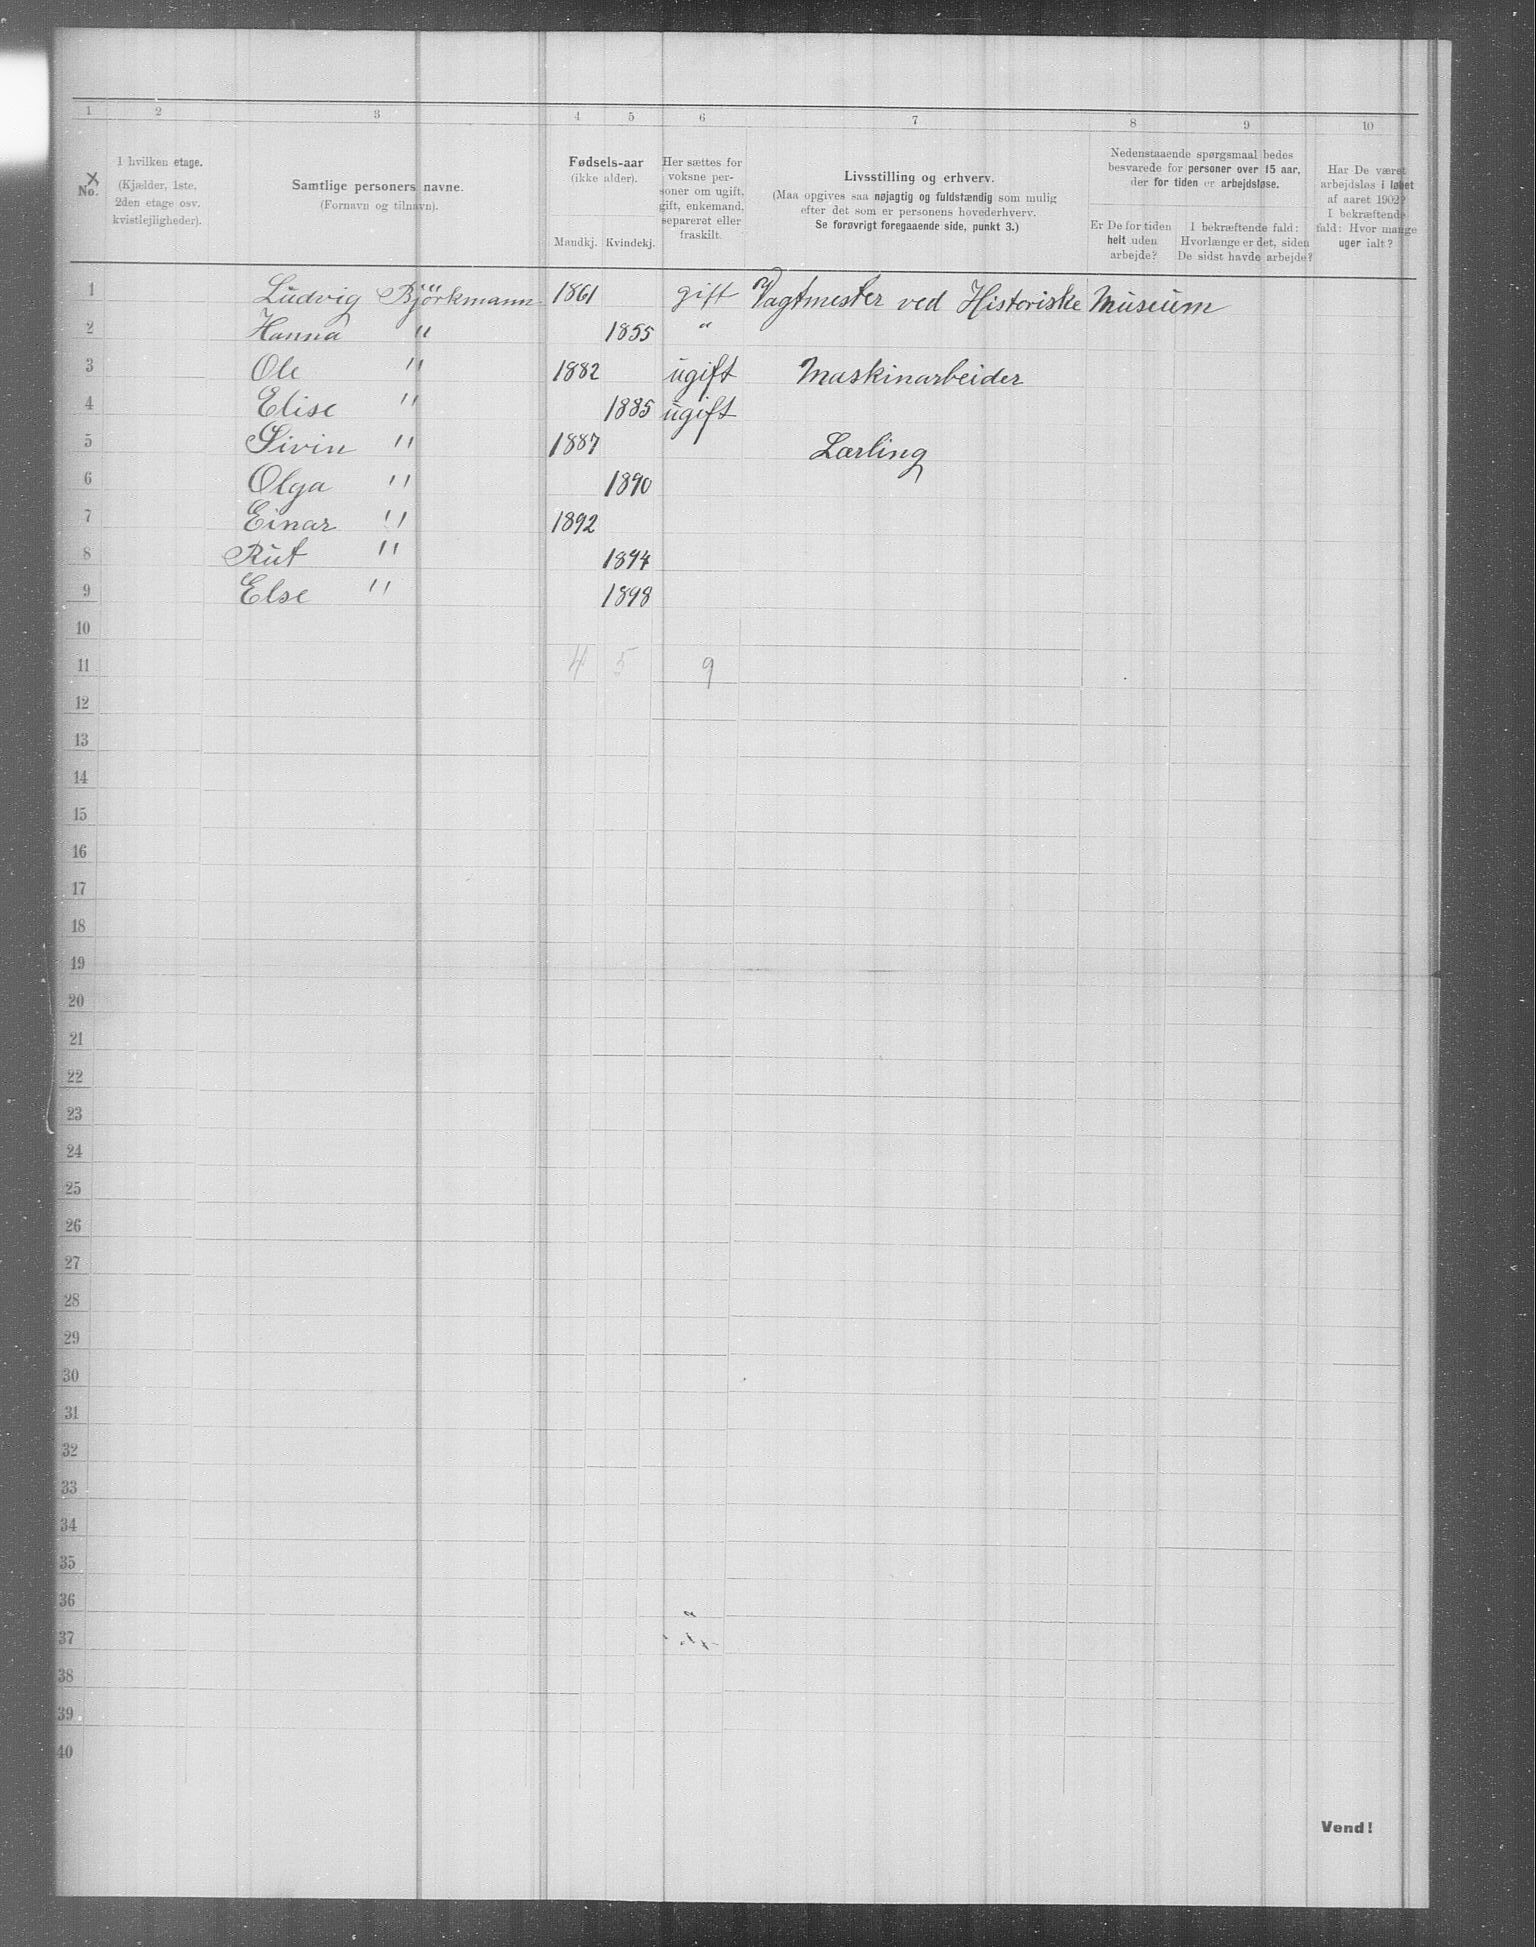 1 2 3 4 5 6 7 8 9 10
No. X
I hvilken etage.
(Kjælder, 1ste,
2den etage osv.
kvistlejligheder).
Samtlige personers navne.
(Fornavn og tilnavn).
Fødsels-aar
(ikke alder).
Mandkj. Kvindekj.
Her sættes for
voksne per-
soner om ugift,
gift, enkemand,
separeret eller
fraskilt.
Livsstilling og erhverv.
(Maa opgives saa nøjagtig og fuldstændig som mulig
efter det som er personens hovederhverv.
Se forøvrigt foregaaende side, punkt 3.)
Nedenstaaende spørgsmaal bedes
besvarede for personer over 15 aar,
der for tiden er arbejdsløse.
Er De for tiden
helt uden
arbejde?
I bekræftende fald:
Hvorlænge er det, siden
De sidst havde arbejde?
Har De været
arbejdsløs i løbet
af aaret 1902?
I bekræftende
fald: Hvor mange
uger ialt?
1 Ludvig Björkmann 1861 gift Vagtmester ved Historiske Museum
2 Hanna " 1855 "
3 Ole " 1882 ugift Maskinarbeider
4 Elise " 1885 ugift
5 Sivin " 1887 Lærling
6 Olga " 1890
7 Einar " 1892
8 Rut " 1894
9 Else " 1898
10
11 4 5 9
12
13
14
15
16
17
18
19
20
21
22
23
24
25
26
27
28
29
30
31
32
33
34
35
36
37
38
39
40
Vend!